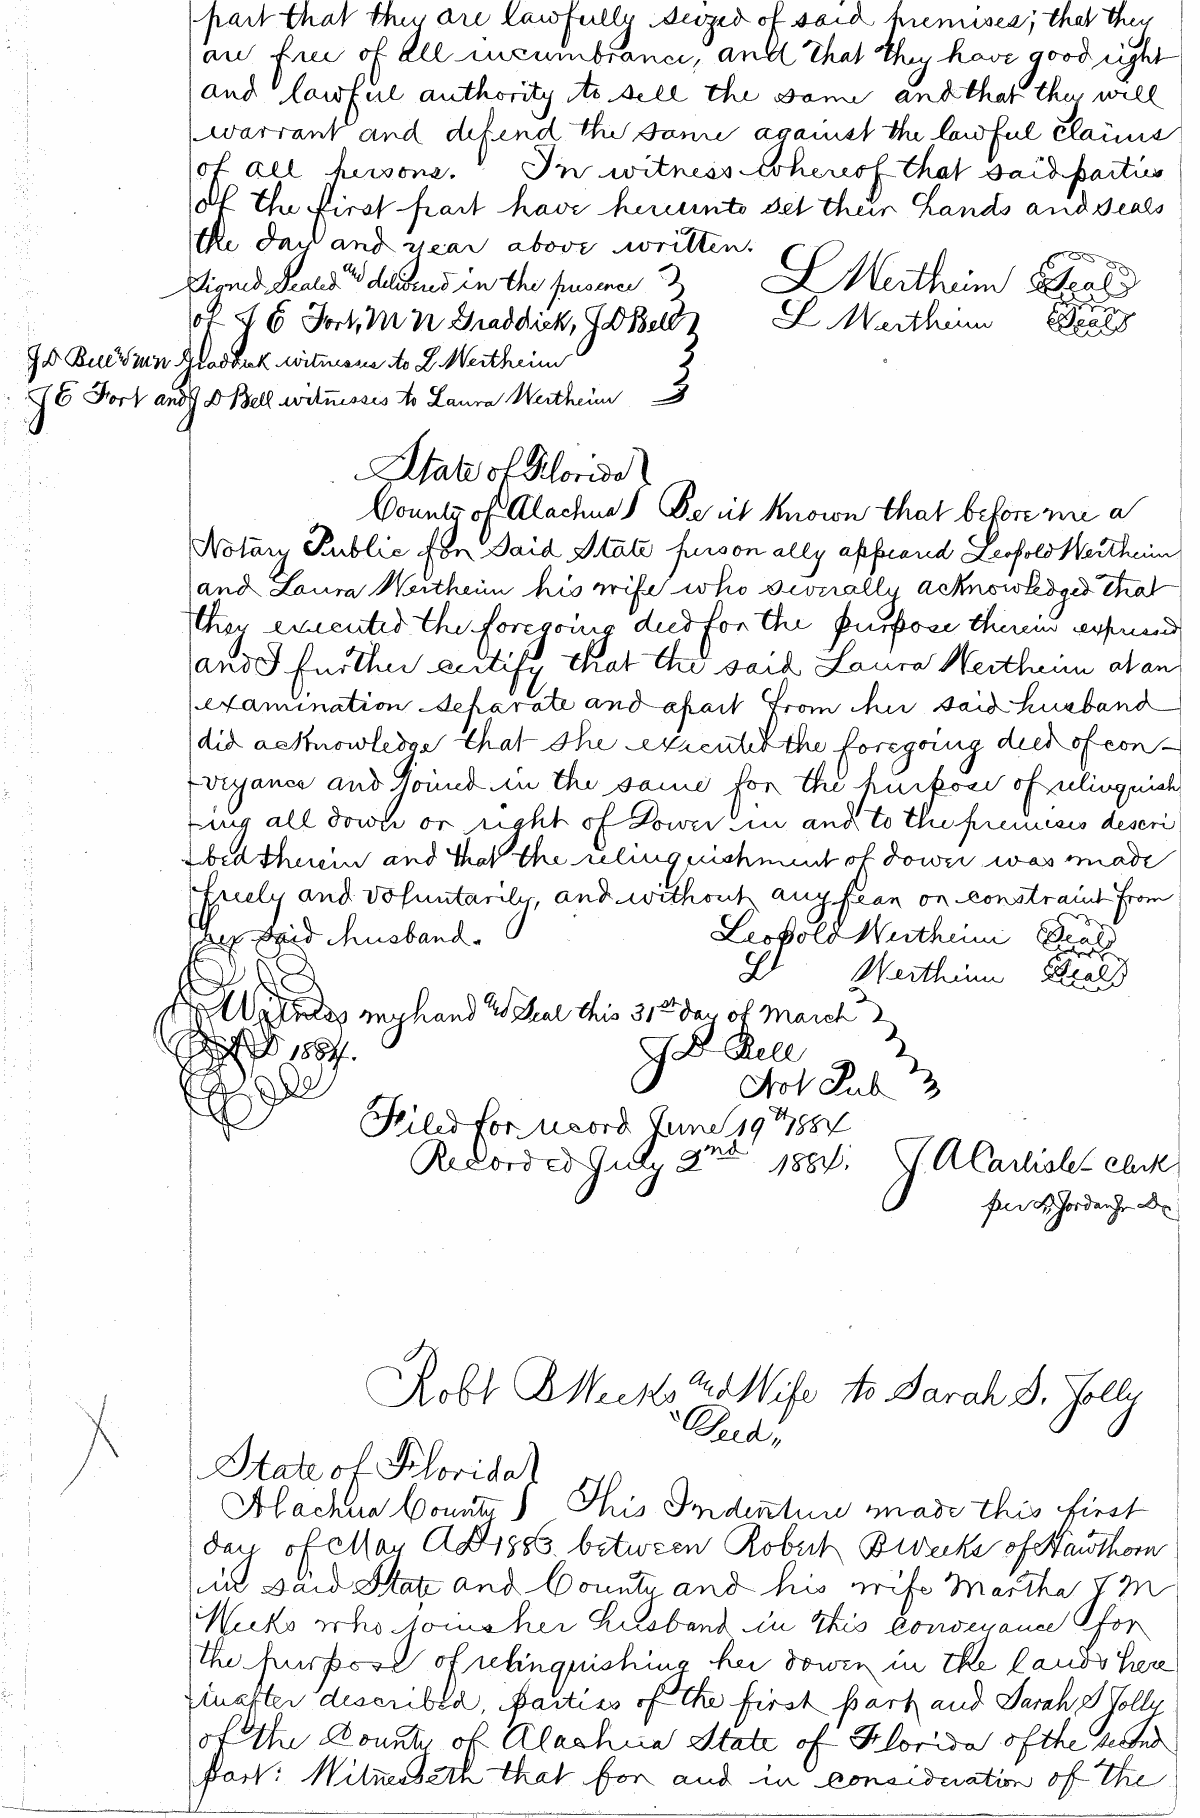 part that they are lawfully seized of said premises; that they
are free of all incumbrance, and that they have good right
and lawful authority to sell the same and that they will
warrant and defend the same against the lawful claims
of all persons. In witness whereof that said parties
of the first part have hereunto set their hands and seals
the day and year above written.
Signed Sealed and delivered in the presence
of J E Fort, M N Graddick, J D Bell
L Wertheim Seal
L Wertheim Seal
J D Bell & M N Graddick witnesses to L Wertheim
J E Fort and J D Bell witnesses to Laura Wertheim
State of Florida
County of Alachua Be it Known that before me a
Notary Public for Said State person ally appeared Leopold Wertheim
and Laura Wertheim his wife who severally acknowledged that
they executed the foregoing deed for the purpose therein expressed
and I further certify that the said Laura Wertheim at an
examination separate and apart from her said husband
did acknowledge that she executed the foregoing deed of con-
-veyance and joined in the same for the purpose of relinquish
-ing all dower or right of Dower in and to the premises descri
-bed therein and that the relinquishment of dower was made
freely and voluntarily, and without any fear or constraint from
her said husband.
Leopold Wertheim Seal
L Wertheim Seal
Witness my hand and Seal this 31st day of March
A D 1884.
J D Bell
Not Pub
Filed for record June 19th 1884
Recorded July 2nd 1884. J A Carlisle clerk
per Jordan Jr DC
Robt B Weeks and Wife to Sarah S. Jolly
"Deed"
State of Florida
Alachua County This Indenture made this first
day of May AD 1883 between Robert B Weeks of Hawthorn
in said State and County and his wife Martha J M
Weeks who joins her husband in this conveyance for
the purpose of relinquishing her dower in the lands here
-inafter described, parties of the first part and Sarah S Jolly
of the County of Alachua State of Florida of the second
part: Witnesseth that for and in consideration of the